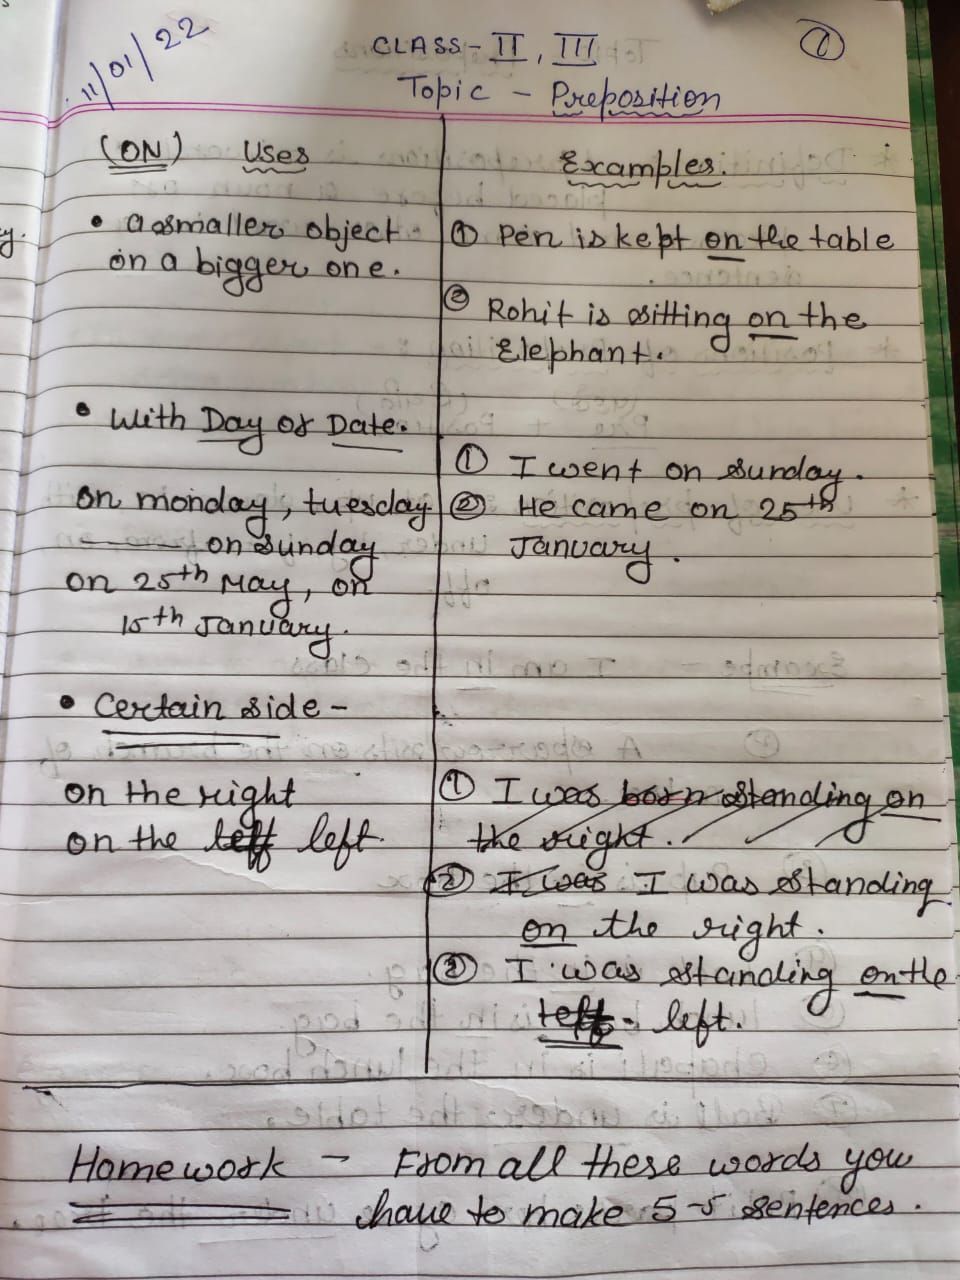 11/01/22
CLASS - II, III
1
Topic - Preposition
(ON) Uses
• a smaller object
on a bigger one.
• With Day or Date.
on monday, tuesday
on sunday
on 25th May, on
15th January.
• Certain side -
on the right
on the left
Examples:
① Pen is kept on the table
② Rohit is sitting on the
Elephant.
① I went on sunday.
② He came on 25th
January.
① I was born standing on
the right.
② I was I was standing
on the right.
② I was standing on the
left.
Homework - From all these words you
have to make 5-5 sentences.